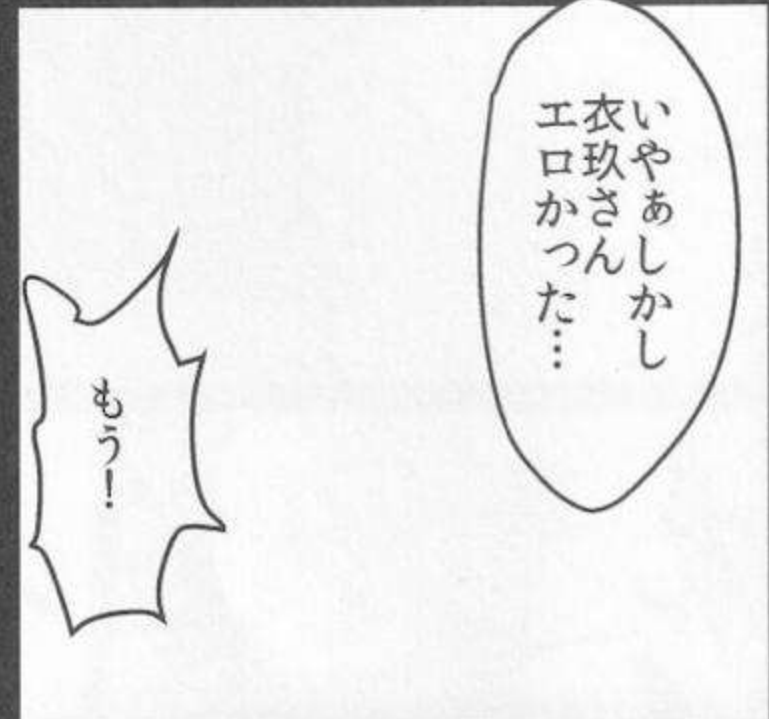 いやぁしかし
衣玖さん
エロかった…
もう！